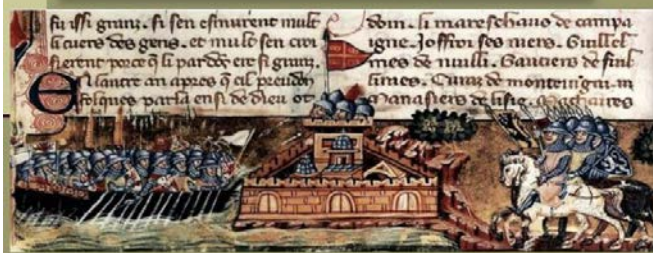 fu issi granz. si sen esmurent mult
li cuers des gens. et mult sen croi
sierent porce q li pardõs ere si granz.
El lautre an apres q cil preudon
folques parla ensi de dieu ot
doin. li mareschaus de campa
igne. Joffroi ses niers. Guillel
mes de nuilli. Gautiers de fuil
lines. de monteingni. m
manasiers de lisle. Machaires